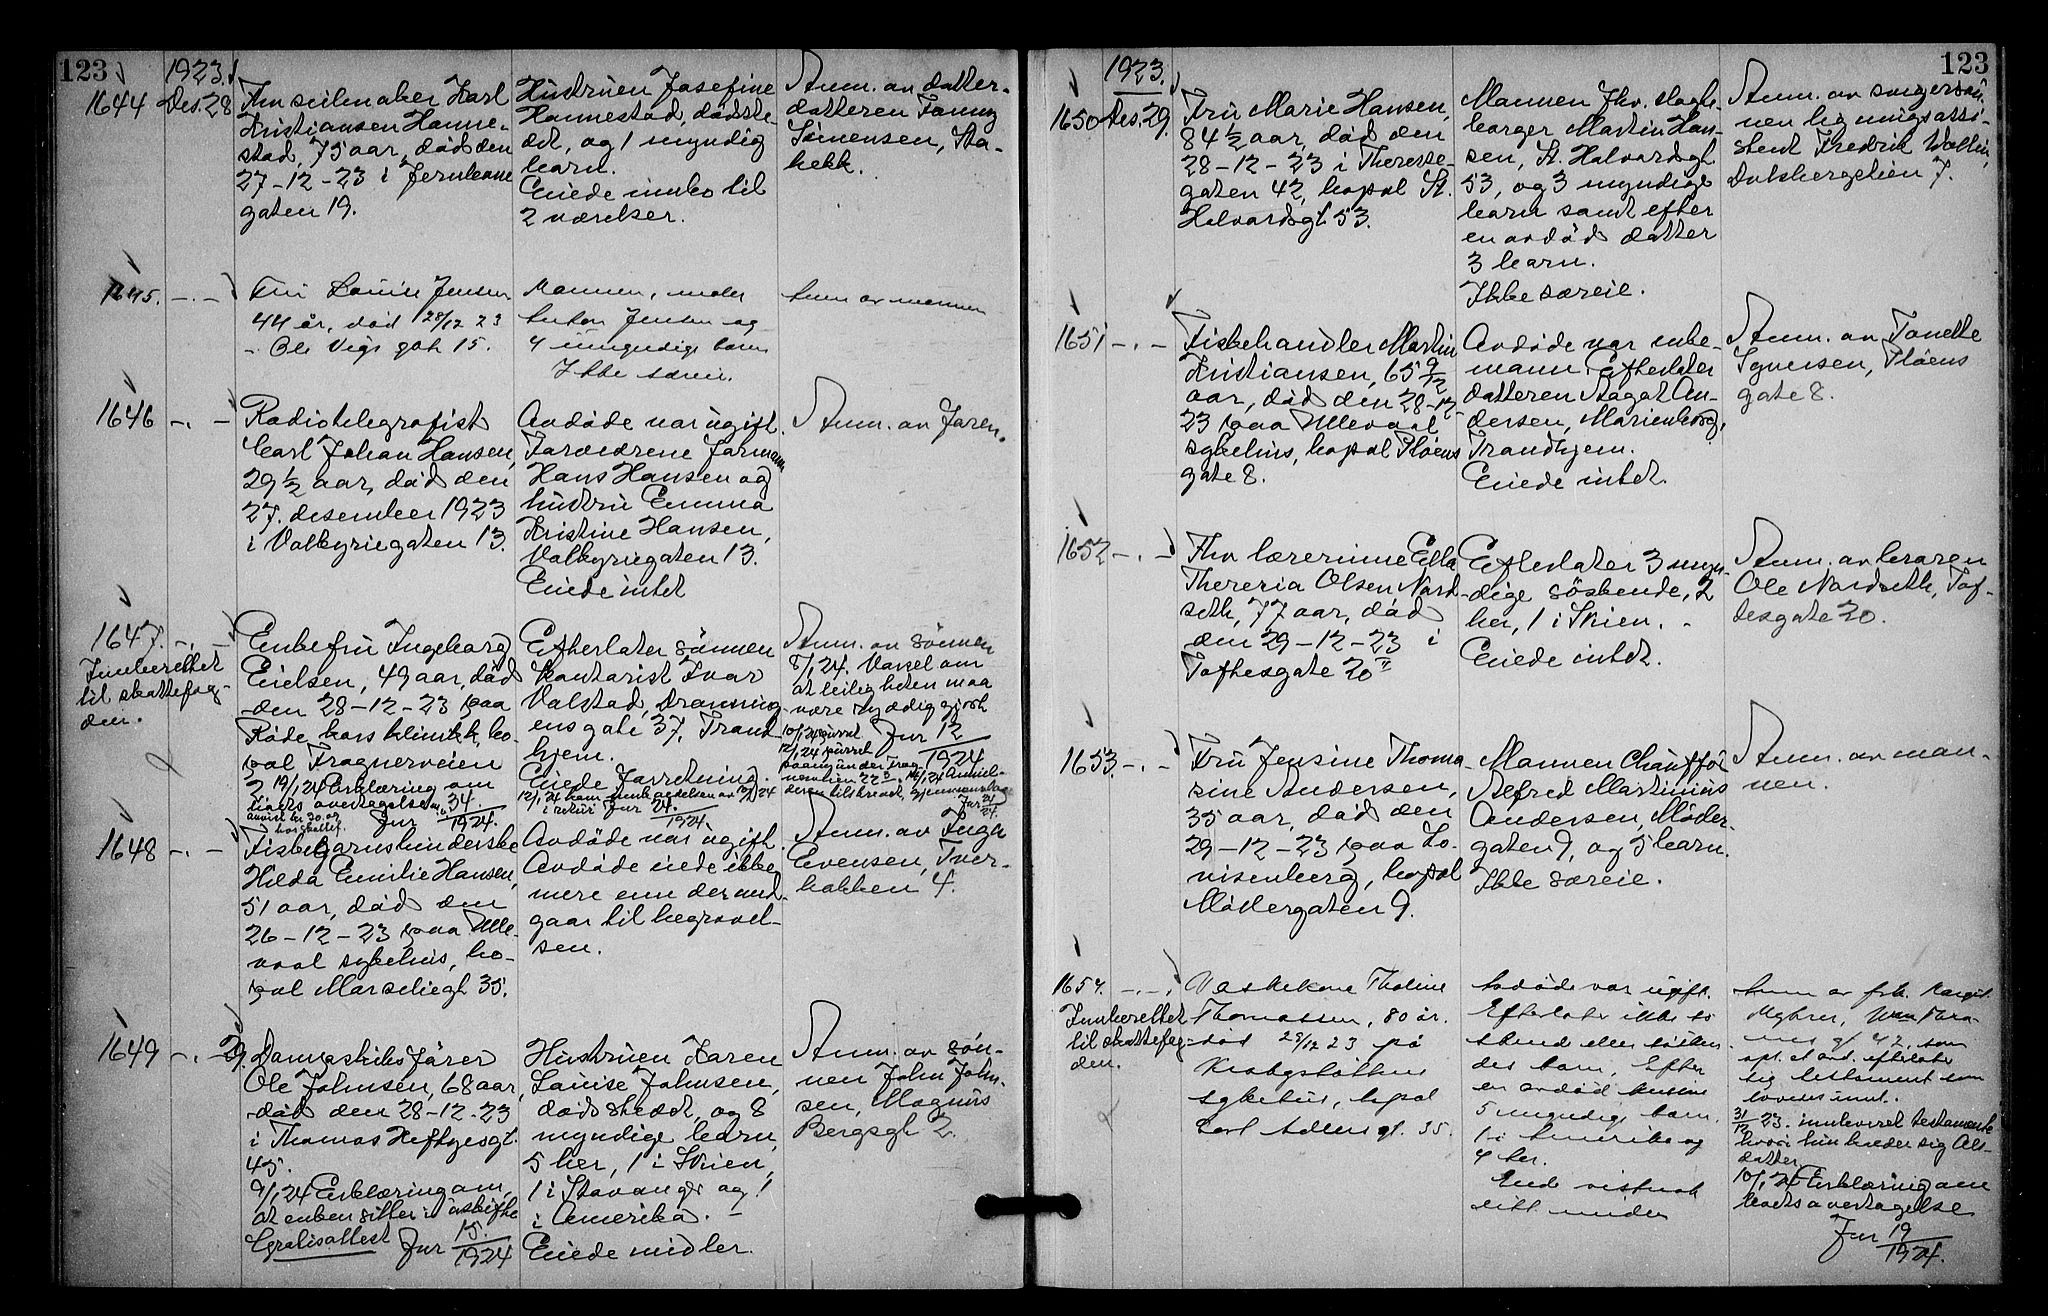 123
1923.
1644 Des. 28
Fhv seilmaker Karl
Kristiansen Hanne-
stad, 75 aar, død den
27-12-23 i Jernbane
gaten 19.
Hustruen Josefine
Hannestad, dødste-
det, og 1 myndig
barn.
Eiede innbo til
2 værelser.
Anm. av datter-
datteren Fanny
Simensen, Sta-
bekk.
1645. -.-
Fru Louise Jensen
44 år, død 28/12 23
- Ole Vigs gate 15.
Mannen, maler
Anton Jensen og
4 umyndige barn
Ikke særeie.
Anm av mannen
1646 -.-
Radiotelegrafist
Carl Johan Hansen,
29 1/2 aar, død den
27. desember 1923
i Valkyriegaten 13.
Avdøde var ugift.
Forældrene formann
Hans Hansen og
hustru Emma
Kristine Hansen,
Valkyriegaten 13.
Eiede intet
Anm. av faren.
1647. -.-
Innberettet
til skattefog-
den.
Enkefru Ingeborg
Eielsen, 49 aar, død
den 28-12-23 paa
Røde kors klinikk, bo-
pæl Frognerveien
2 19/1 24 Erklæring om
boets overtagelse
Jur 34./1924.
Efterlater sønnen
kontorist Ivar
Valstad, Dronning
ens gate 37, Trond
hjem.
Eiede forretning.
i retur Jur 24./1924.
Anm. av sønnen
8/1 24. Varsel om
at leiligheten maa
være ryddiggjort
Jur 12/1924
10/1 24 purret
12/1 24 purret
Jur 24/24.
1648 -.-
Fiskegarnsbinderske
Hilda Emilie Hansen,
51 aar, død den
26-12-23 paa Ulle-
vaal sykehus, bo-
pæl Marseliegt 35.
Avdøde var ugift.
Avdøde eiede ikke
mere enn der med-
gaar til begravel-
sen.
Anm. av Inga
Evensen, Tver-
bakken 4.
1649 -.- 29.
Dampskibsfører
Ole Johnsen, 68 aar,
død den 28-12-23
i Thomas Heftyesgt.
45.
9/1 24 Erklæring om,
at enken sitter i uskifte
Gratisattest Jur 15./1924
Hustruen Karen
Louise Johnsen,
dødsstedet, og 8
myndige barn,
5 her, 1 i Skien,
1 i Stavanger og 1
i Amerika. -
Eiede midler.
Anm. av søn-
nen John John-
sen, Magnus
Bergsgt 2.
123
1923.
1650 Des. 29.
Fru Marie Hansen,
84 1/2 aar, død den
28-12-23 i Therese-
gaten 42, bopæl St.
Halvardsgt 53.
Mannen fhv. slagte-
borger Martin Han-
sen, St. Halvardsgt
53, og 3 myndige
barn samt efter
en avdød datter
3 barn.
Ikke særeie.
Anm. av svigersøn-
nen ligningsassi-
stent Fredrik Wollin,
Dalsbergstien 7.
1651 -.-
Fiskehandler Martin
Kristiansen, 65 9/12
aar, død den 28-12-
23 paa Ullevaal
sykehus, bopæl Fløens
gate 8.
Avdøde var enke-
mann. Efterlater
datteren Aagot An-
dersen, Marienborg,
Trondhjem.
Eiede intet.
Anm. av Tonette
Syversen, Fløens
gate 8.
1652 -.-
Fhv lærerinne Ella
Theresia Olsen Nord-
seth, 77 aar, død
den 29-12-23 i
Toftesgate 20 II
Efterlater 3 myn-
dige søskende, 2
her, 1 i Skien. -
Eiede intet.
Anm. av broren
Ole Nordseth, Tof-
tesgate 20.
1653. -.-
Fru Jensine Thoma-
sine Andersen,
35 aar, død den
29-12-23 paa Lo-
visenberg, bopæl
Møllergaten 9.
Mannen chauffør
Alfred Martinius
Andersen, Møller-
gaten 9, og 5 barn.
Ikke særeie.
Anm. av man-
nen.
1654. -.-
Innberettet
til skattefog-
den.
Vaskekone Tholine
Thomassen, 80 år.
død 29/12 23 på
Krohgstøttens
sykehus, bopæl
Carl Adlers gt. 35.
Avdøde var ugift.
Efterlater ikke æg-
tefelle eller
barn. Efter
en avdød
5 myndige barn,
1 i Amerika og
4 her.
Eiede visstnok
litt midler
Anm av frk. Margit
Myhrer,
gt 42, som
opl. at avd. efterlater
sig testament som
loves innl.
31/12 23. innleveret testamente
hvori hun kaller sig Ols-
datter
10/1 24 Erklæring om
boets overtagelse
Jur 19/1924.